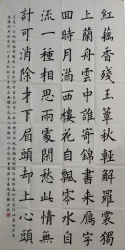 紅藕香殘玉簟秋輕解羅裳獨
上蘭舟雲中誰寄錦書來雁字
回時月滿西樓花自飄零水自
流一種相思兩處閑愁此情無
計可消除才下眉頭卻上心頭